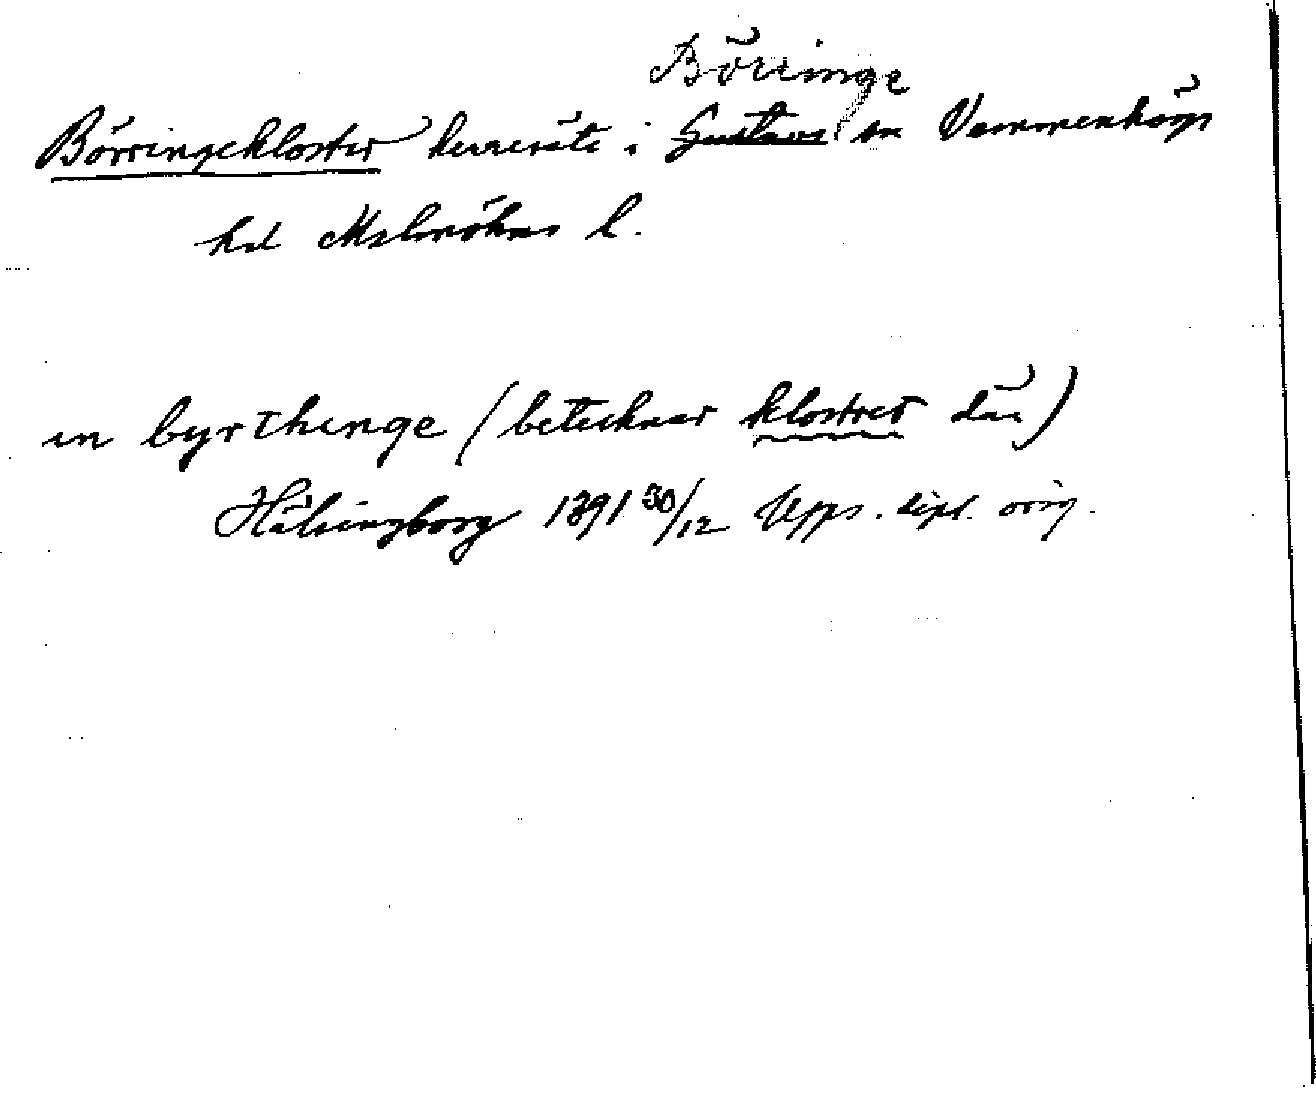 Börringe
Börringekloster herresäte i Gustavs sn Vemmenhögs
hd Malmöhus l.
in byrthinge (betecknar klostret där)
Hälsingborg 1391 30/12 Upps. dipl. orig.